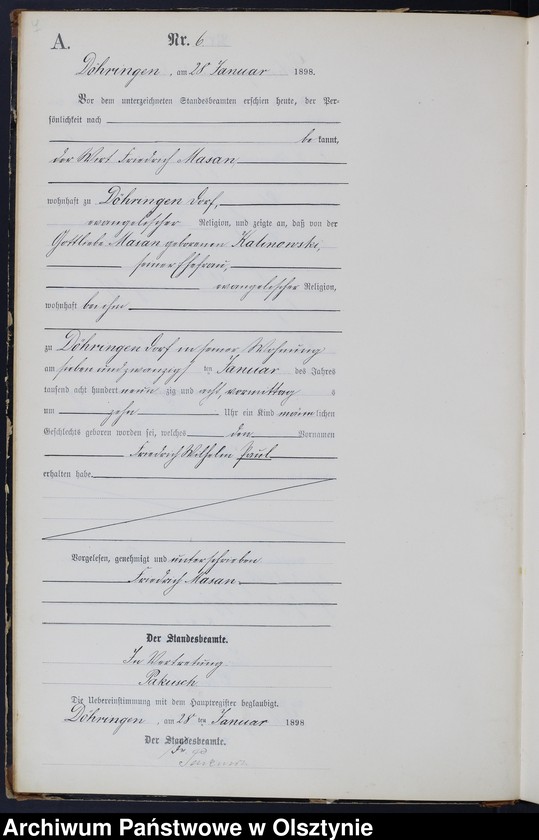 A.
Nr. 6
Döhringen, am 28 Januar 1898.
Vor dem unterzeichneten Standesbeamten erschien heute, der Per-
sönlichkeit nach
be kannt,
der Wirt Friedrich Masan
wohnhaft zu Döhringen Dorf,
evangelischer Religion, und zeigte an, daß von der
Gottliebe Masan geborenen Kalinowski,
seiner Ehefrau,
evangelischer Religion,
wohnhaft bei ihm
zu Döhringen Dorf in seiner Wohnung
am sieben und zwanzigsten Januar des Jahres
tausend acht hundert neun zig und acht, vormittag s
um zehn Uhr ein Kind männlichen
Geschlechts geboren worden sei, welches den Vornamen
Friedrich Wilhelm Paul
erhalten habe.
Vorgelesen, genehmigt und unterschrieben
Friedrich Masan
Der Standesbeamte.
In Vertretung
Pakusch
Die Uebereinstimmung mit dem Hauptregister beglaubigt.
Döhringen, am 28 ten Januar 1898
Der Standesbeamte.
Archiwum Państwowe w Olsztynie